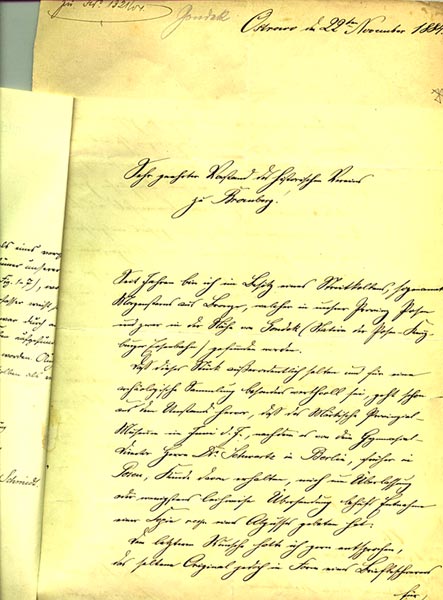 zu No 1321/84.
Gondek
Ostrowo d. 22ten November 1884.
Sehr geehrter Vorstand des historischen Vereins
zu Bromberg!
Seit Jahren bin ich im Besitz eines Streitkeltes, sogenannt
Wagenstans aus Bronze, welcher in unsrer Provinz Posen
und zwar in der Nähe von Gondek (Station der Posen-Kreuz-
burger Eisenbahn) gefunden worden.
Daß dieses Stück außerordentlich selten und für eine
archäologische Sammlung besonders werthvoll sei, geht schon
aus dem Umstande hervor, daß das Märkische Provinzial-
Museum im Juni d. J., nachdem es von dem Gymnasial-
direktor Herrn Dr. Schwartz in Berlin, früher in
Posen, Kunde davon erhalten, mich um Überlassung
oder wenigstens leihweise Übersendung behufs Entnahme
einer Kopie resp. eines Abgusses gebeten hat.
Dem letzteren Wunsche habe ich gern entsprochen,
das seltene Original jedoch in Form eines Briefbeschwerers
für,
als eines
unserer
Fig. 1-7),
war durch
werden
als
Schmidt